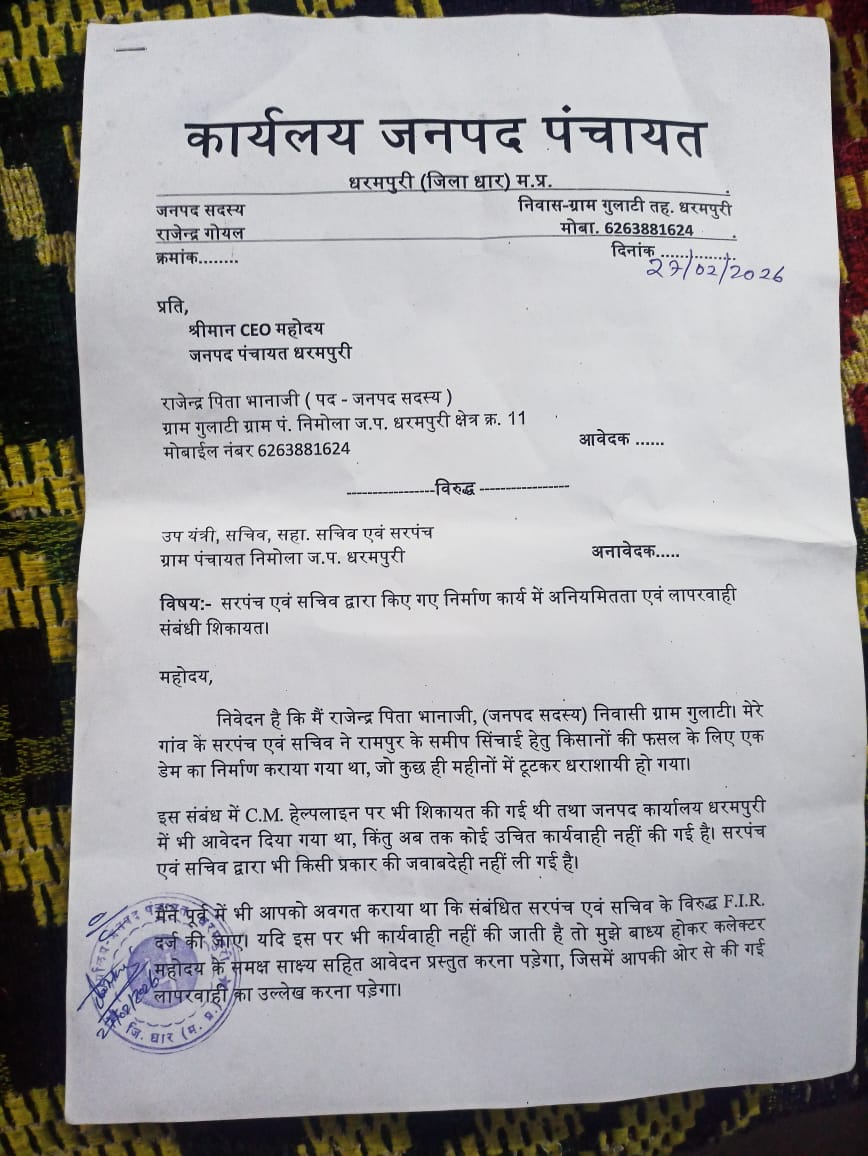 कार्यलय जनपद पंचायत
धरमपुरी (जिला धार) म.प्र.
जनपद सदस्य निवास-ग्राम गुलाटी तह. धरमपुरी
राजेन्द्र गोयल मोबा. 6263881624
क्रमांक........ दिनांक ..............
27/02/2026
प्रति,
श्रीमान CEO महोदय
जनपद पंचायत धरमपुरी
राजेन्द्र पिता भानाजी ( पद - जनपद सदस्य )
ग्राम गुलाटी ग्राम पं. निमोला ज.प. धरमपुरी क्षेत्र क्र. 11
मोबाईल नंबर 6263881624 आवेदक ......
-----------------विरुद्ध -----------------
उप यंत्री, सचिव, सहा. सचिव एवं सरपंच
ग्राम पंचायत निमोला ज.प. धरमपुरी अनावेदक.....
विषय:- सरपंच एवं सचिव द्वारा किए गए निर्माण कार्य में अनियमितता एवं लापरवाही
संबंधी शिकायत।
महोदय,
निवेदन है कि मैं राजेन्द्र पिता भानाजी, (जनपद सदस्य) निवासी ग्राम गुलाटी। मेरे
गांव के सरपंच एवं सचिव ने रामपुर के समीप सिंचाई हेतु किसानों की फसल के लिए एक
डेम का निर्माण कराया गया था, जो कुछ ही महीनों में टूटकर धराशायी हो गया।
इस संबंध में C.M. हेल्पलाइन पर भी शिकायत की गई थी तथा जनपद कार्यालय धरमपुरी
में भी आवेदन दिया गया था, किंतु अब तक कोई उचित कार्यवाही नहीं की गई है। सरपंच
एवं सचिव द्वारा भी किसी प्रकार की जवाबदेही नहीं ली गई है।
मैंने पूर्व में भी आपको अवगत कराया था कि संबंधित सरपंच एवं सचिव के विरुद्ध F.I.R.
दर्ज की जाए। यदि इस पर भी कार्यवाही नहीं की जाती है तो मुझे बाध्य होकर कलेक्टर
महोदय के समक्ष साक्ष्य सहित आवेदन प्रस्तुत करना पड़ेगा, जिसमें आपकी ओर से की गई
लापरवाही का उल्लेख करना पड़ेगा।
27/02/2026
जि. धार (म. प्र.)